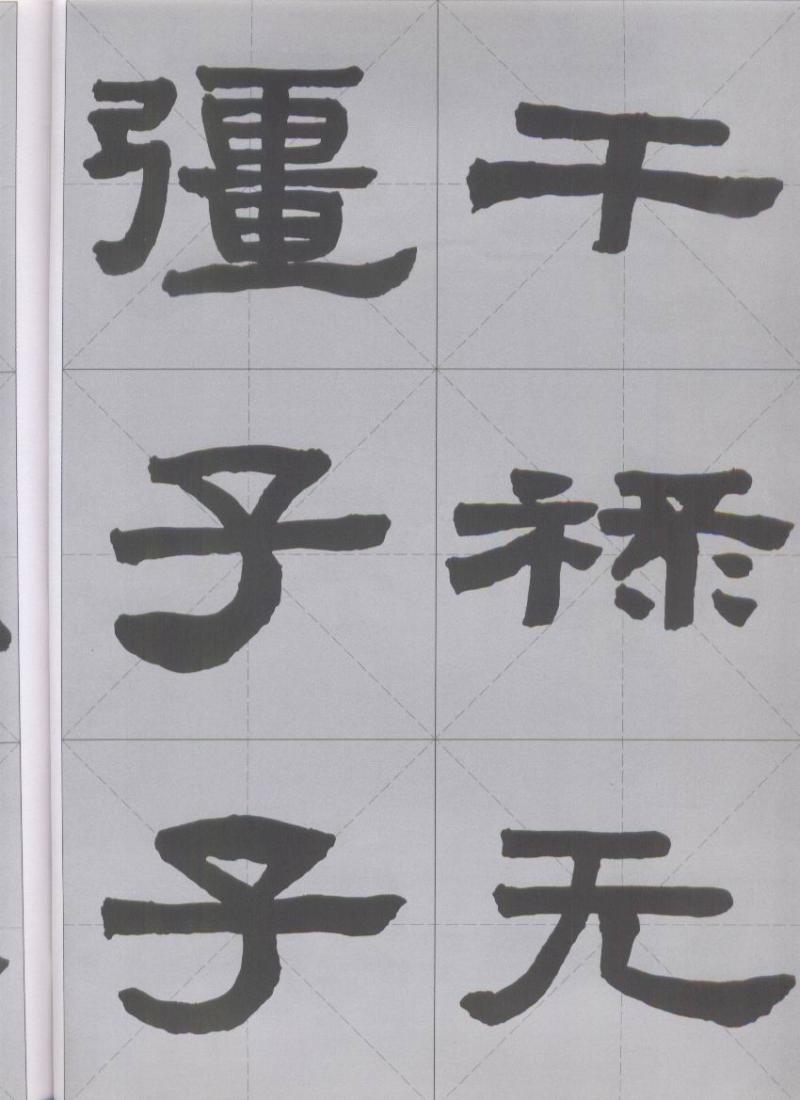 干禄无
彊子子